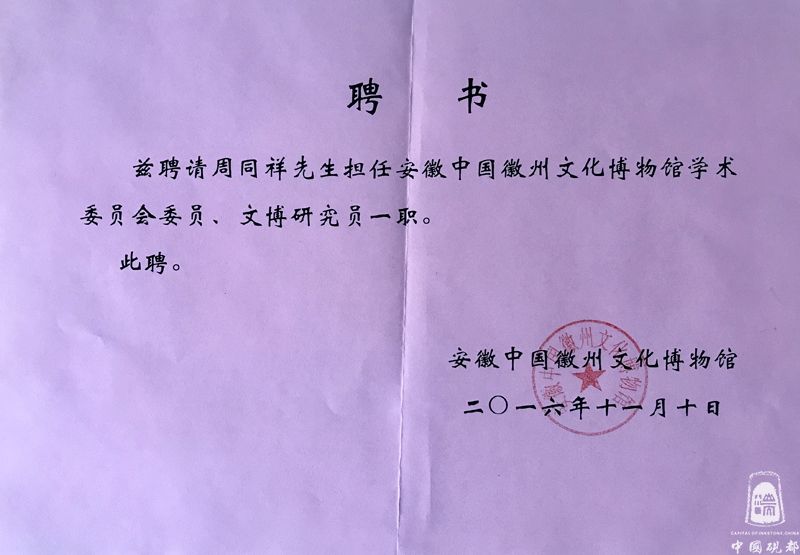 聘 书
兹聘请周同祥先生担任安徽中国徽州文化博物馆学术
委员会委员、文博研究员一职。
此聘。
安徽中国徽州文化博物馆
安徽中国徽州文化博物馆
二〇一六年十一月十日
CAPITAL OF INKSTONE, CHINA
中國砚都